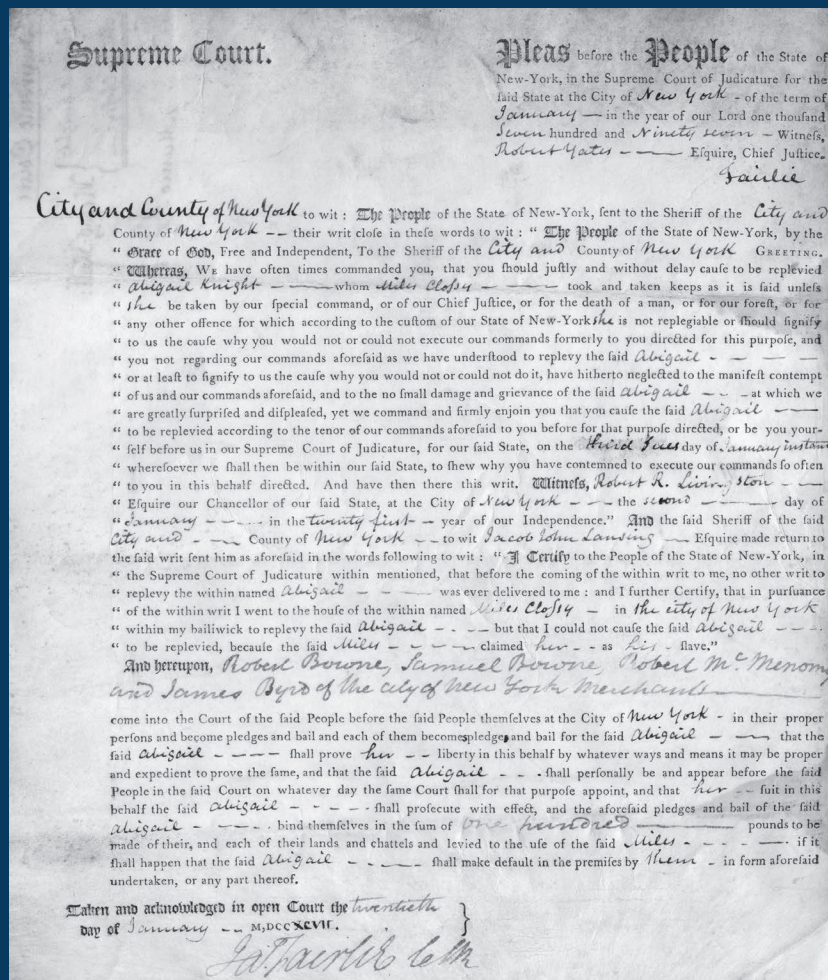 Supreme Court.
Pleas before the People of the State of
New-York, in the Supreme Court of Judicature for the
ſaid State at the City of New York - of the term of
January — in the year of our Lord one thouſand
Seven hundred and Ninety seven - Witneſs,
Robert Yates - - —— Eſquire, Chief Juſtice.
Fairlie
City and County of New York to wit : The People of the State of New-York, ſent to the Sheriff of the City and
County of New York - - their writ cloſe in theſe words to wit : “ The People of the State of New-York, by the
“ Grace of God, Free and Independent, To the Sheriff of the City and County of New York GREETING.
“ Whereas, WE have often times commanded you, that you ſhould juſtly and without delay cauſe to be replevied
“ Abigail Knight - —— whom Miles Cloſsy - —— took and taken keeps as it is ſaid unleſs
“ she be taken by our ſpecial command, or of our Chief Juſtice, or for the death of a man, or for our foreſt, or for
“ any other offence for which according to the cuſtom of our State of New-York she is not replegiable or ſhould ſignify
“ to us the cauſe why you would not or could not execute our commands formerly to you directed for this purpoſe, and
“ you not regarding our commands aforeſaid as we have underſtood to replevy the ſaid Abigail - - — —
“ or at leaſt to ſignify to us the cauſe why you would not or could not do it, have hitherto neglected to the manifeſt contempt
“ of us and our commands aforeſaid, and to the no ſmall damage and grievance of the ſaid abigail — - - at which we
“ are greatly ſurpriſed and diſpleaſed, yet we command and firmly enjoin you that you cauſe the ſaid Abigail - ——
“ to be replevied according to the tenor of our commands aforeſaid to you before for that purpoſe directed, or be you your-
“ ſelf before us in our Supreme Court of Judicature, for our ſaid State, on the third Tues day of January instant
“ whereſoever we ſhall then be within our ſaid State, to ſhew why you have contemned to execute our commands ſo often
“ to you in this behalf directed. And have then there this writ. Witneſs, Robert R. Livingston - —
“ Eſquire our Chancellor of our ſaid State, at the City of New York - —— the second - —— day of
“ January - - - - in the twenty first — year of our Independence.” And the ſaid Sheriff of the ſaid
City and - - County of New York - - to wit Jacob John Lansing — Eſquire made return to
the ſaid writ ſent him as aforeſaid in the words following to wit : “ I Certify to the People of the State of New-York, in
“ the Supreme Court of Judicature within mentioned, that before the coming of the within writ to me, no other writ to
“ replevy the within named Abigail - - —— was ever delivered to me : and I further Certify, that in purſuance
“ of the within writ I went to the houſe of the within named Miles Cloſsy - in the city of New York
“ within my bailiwick to replevy the ſaid Abigail - - — - but that I could not cauſe the ſaid Abigail - - —
“ to be replevied, becauſe the ſaid Miles - - —— claimed her - - as his - ſlave.”
And hereupon, Robert Bowne, Samuel Bowne, Robert Mc. Menomy
and James Byrd of the city of New York Merchants ——
come into the Court of the ſaid People before the ſaid People themſelves at the City of New York - in their proper
perſons and become pledges and bail and each of them becomes pledge, and bail for the ſaid Abigail - - — that the
ſaid Abigail - - —— ſhall prove her - - liberty in this behalf by whatever ways and means it may be proper
and expedient to prove the ſame, and that the ſaid Abigail - - - ſhall perſonally be and appear before the ſaid
People in the ſaid Court on whatever day the ſame Court ſhall for that purpoſe appoint, and that her - - ſuit in this
behalf the ſaid abigail - - - - - ſhall proſecute with effect, and the aforeſaid pledges and bail of the ſaid
abigail - - - - . bind themſelves in the ſum of one hundred —— pounds to be
made of their, and each of their lands and chattels and levied to the uſe of the ſaid Miles - - - - —. if it
ſhall happen that the ſaid Abigail - - - — ſhall make default in the premiſes by them - in form aforeſaid
undertaken, or any part thereof.
Taken and acknowledged in open Court the twentieth
day of January - - M,DCCXCVII.
Ja. Fairlie Clk